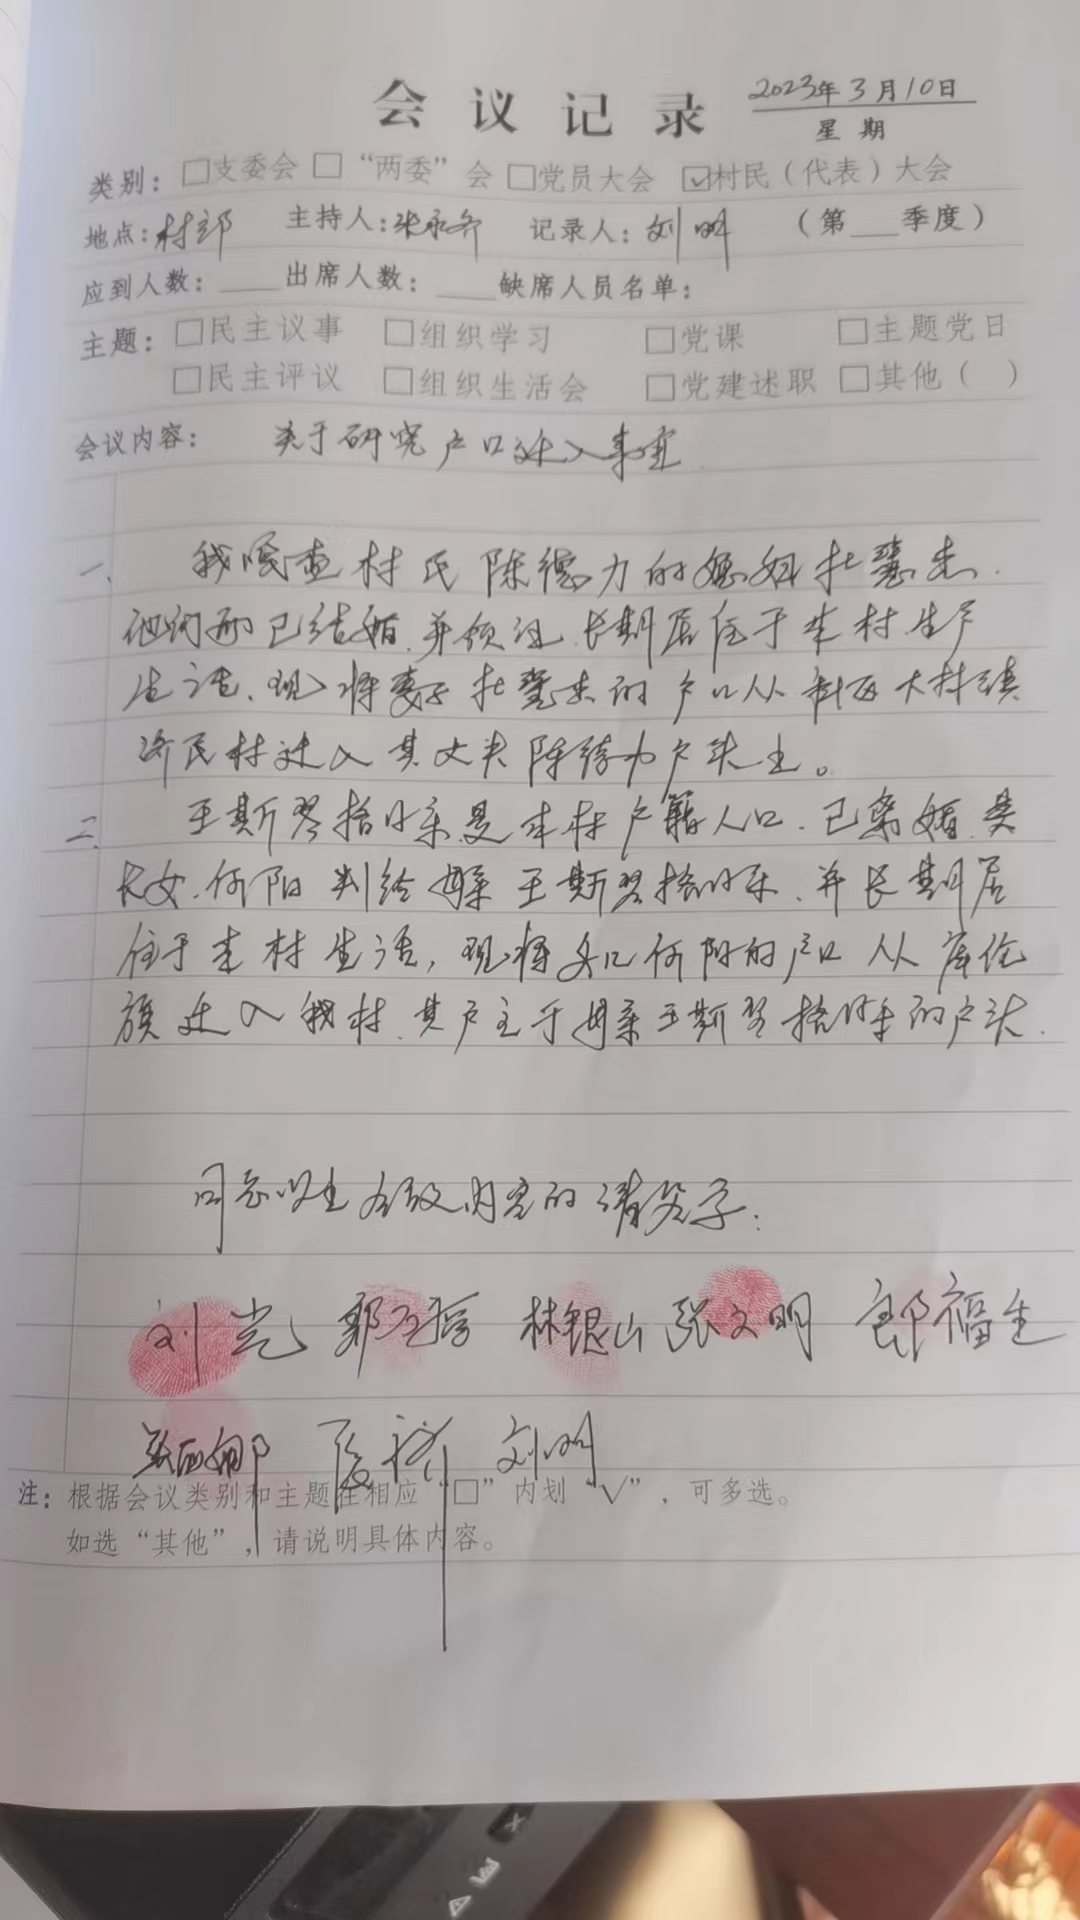 会议记录 2023年3月10日
星期
类别: □支委会 □“两委”会 □党员大会 ☑村民(代表)大会
地点:村部 主持人:张 记录人:刘明 (第___季度)
应到人数:____出席人数:____缺席人员名单:
主题: □民主议事 □组织学习 □党课 □主题党日
□民主评议 □组织生活会 □党建述职 □其他( )
会议内容: 关于研究户口迁入事宜
一、 我嘎查村民陈德力的媳妇杜慧杰.
他们两已结婚.并领证.长期居住于本村.生产
生活、现将妻子杜慧杰的户口从 大林镇
济民村迁入其丈夫陈德力户头上。
二、 王斯琴 是本村户籍人口.已离婚.其
长女.何阳判给母亲王斯琴 .并长期居
住于本村生活,现将女儿何阳的户口从库伦
旗迁入我村.其户主于母亲王斯琴 的户头.
同意以上各项内容的请签字:
刘 郭 林银山 张文明 邰福生
娜 刘明
注:根据会议类别和主题在相应“□”内划“√”,可多选。
如选“其他”,请说明具体内容。